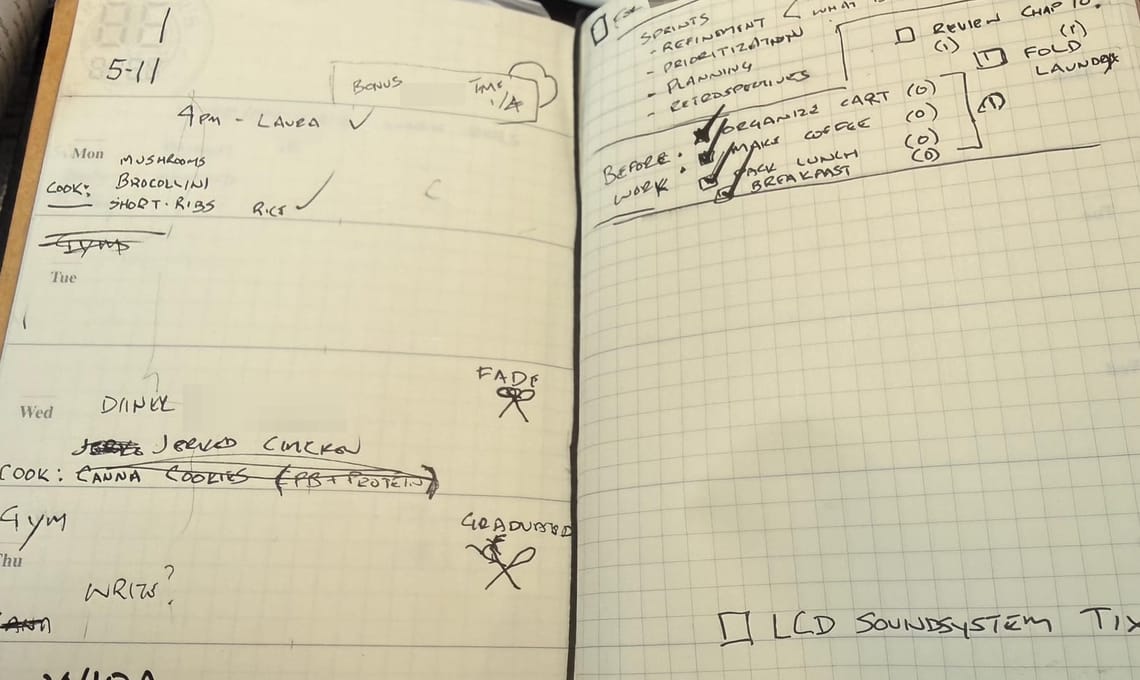 5-11
BONUS TIME 1/4
4PM - LAURA ✓
Mon
MUSHROOMS
COOK: BROCOLLINI
SHORT-RIBS RICE ✓
GYM
Tue
FADE
Wed
JERKED CHICKEN
COOK: CANNA COOKIES (PB + PROTEIN)
GYM
GRADUATED
Thu
WRITE?
SPRINTS
- REFINEMENT
- PRIORITIZATION
- PLANNING
- RETROSPECTIVES
WHAT
REVIEW CHAP 10.
(1)
(1)
FOLD
LAUNDRY
BEFORE WORK:
ORGANIZE CART (0)
MAKE COFFEE (0)
PACK LUNCH (0)
BREAKFAST (0)
(1)
LCD SOUNDSYSTEM TIX